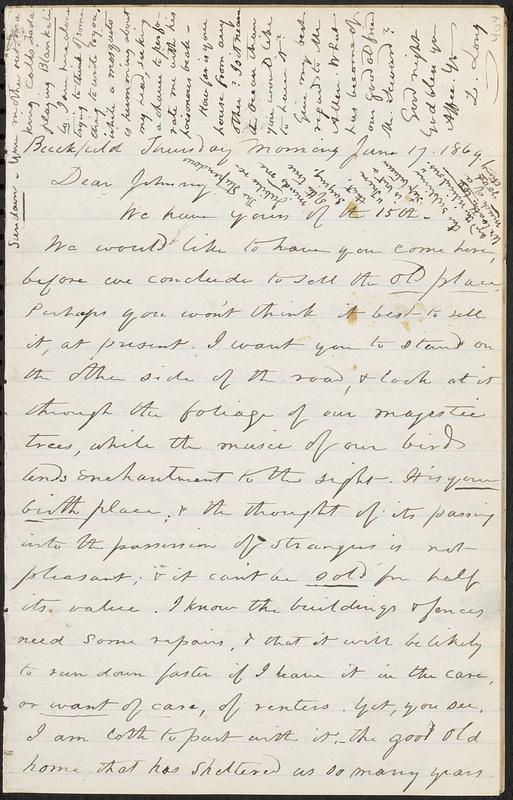 Buckfield Thursday morning June 17. 1869
Dear Johnny,
We have yours of the 15th -
We would like to have you come here,
before we conclude to sell the old place.
Perhaps you won't think it best to sell
it, at present. I want you to stand on
the other side of the road, & look at it
through the foliage of our magestic
trees, while the music of our birds
lends enchantment to the sight. It is your
birth place, & the thought of its passing
into the possession of strangers is not
pleasant; & it can't be sold for half
its value. I know the buildings & fences
need some repairs, & that it will be likely
to run down faster if I leave it in the care,
or want of care, of renters. Yet, you see,
I am loth to part with it, - the good old
home that has sheltered us so many years
Sundown. Your mother
playing
trying to think of some
thing to write to you,
while a mosquito
is humming about
my head, seeking
a chance to perfo-
rate me with his
poisonous beak -
How far is your
house from any
other? Is it nearer
the ocean than
you would like
to have it?
Give my best
regards to the
Allens. What
has become of
our good old friend
Mr. Steward?
Good night
God bless you
Affec. Yrs
Z. Long
404